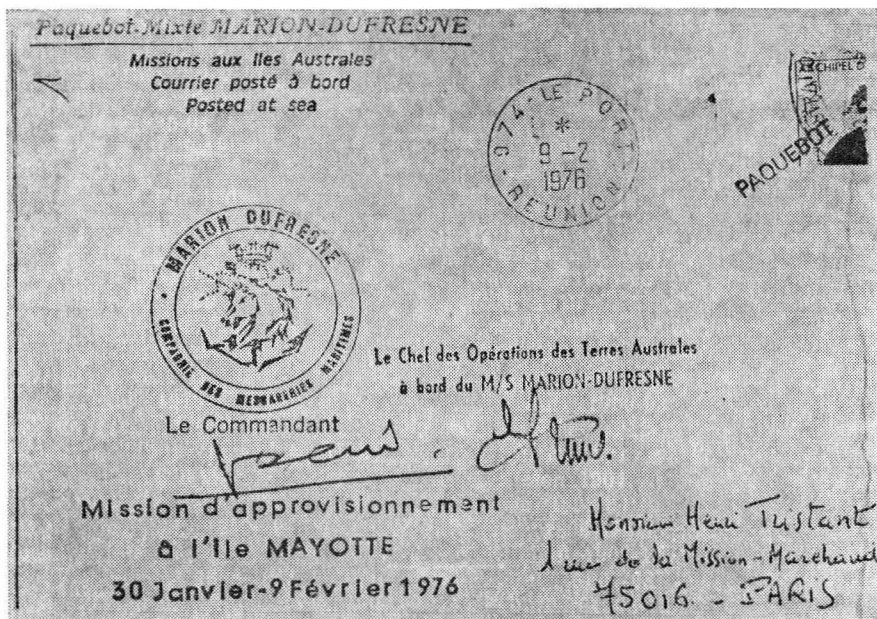 Paquebot-Mixte MARION-DUFRESNE
Missions aux Iles Australes
Courrier posté à bord
Posted at sea
974 - LE PORT
*
9 - 2
1976
REUNION
ARCHIPEL D
PAQUEBOT
MARION DUFRESNE
COMPAGNIE DES MESSAGERIES MARITIMES
Le Chef des Opérations des Terres Australes
à bord du M/S MARION-DUFRESNE
Le Commandant
Mission d'approvisionnement
à l'Ile MAYOTTE
30 Janvier-9 Février 1976
Monsieur Henri Tristant
1 rue de la Mission-Marchand
75016 - PARIS